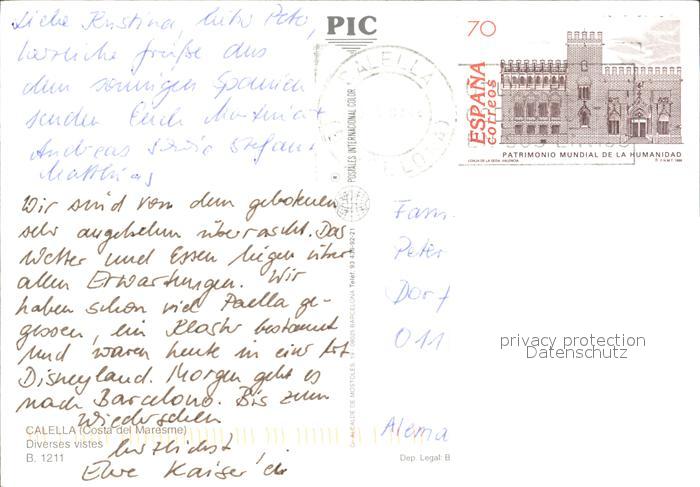 Liebe Kristina, lieber Peter,
herzliche Grüße aus
dem sonnigen Spanien
senden Euch
Andreas Stefanie
Matthias
Wir sind von dem gebotenen
sehr angenehm überrascht. Das
Wetter und Essen liegen über
allen Erwartungen. Wir
haben schon viel Paella ge-
gessen, ein Kloster bestaunt
und waren heute in einer Art
Disneyland. Morgen geht es
nach Barcelona. Bis zum
Wiedersehen
herzlichst,
Eure Kaiser's
CALELLA (Costa del Maresme)
Diverses vistes
B. 1211
PIC
POSTALES INTERNACIONAL COLOR
ALCALDE DE MOSTOLES, 08025 BARCELONA Telef. 93
Dep. Legal: B
CALELLA
70
ESPAÑA
correos
PATRIMONIO MUNDIAL DE LA HUMANIDAD
LONJA DE LA SEDA. VALENCIA
F.N.M.T.
Fam.
Peter
Dorf
011
Alema
privacy protection
Datenschutz